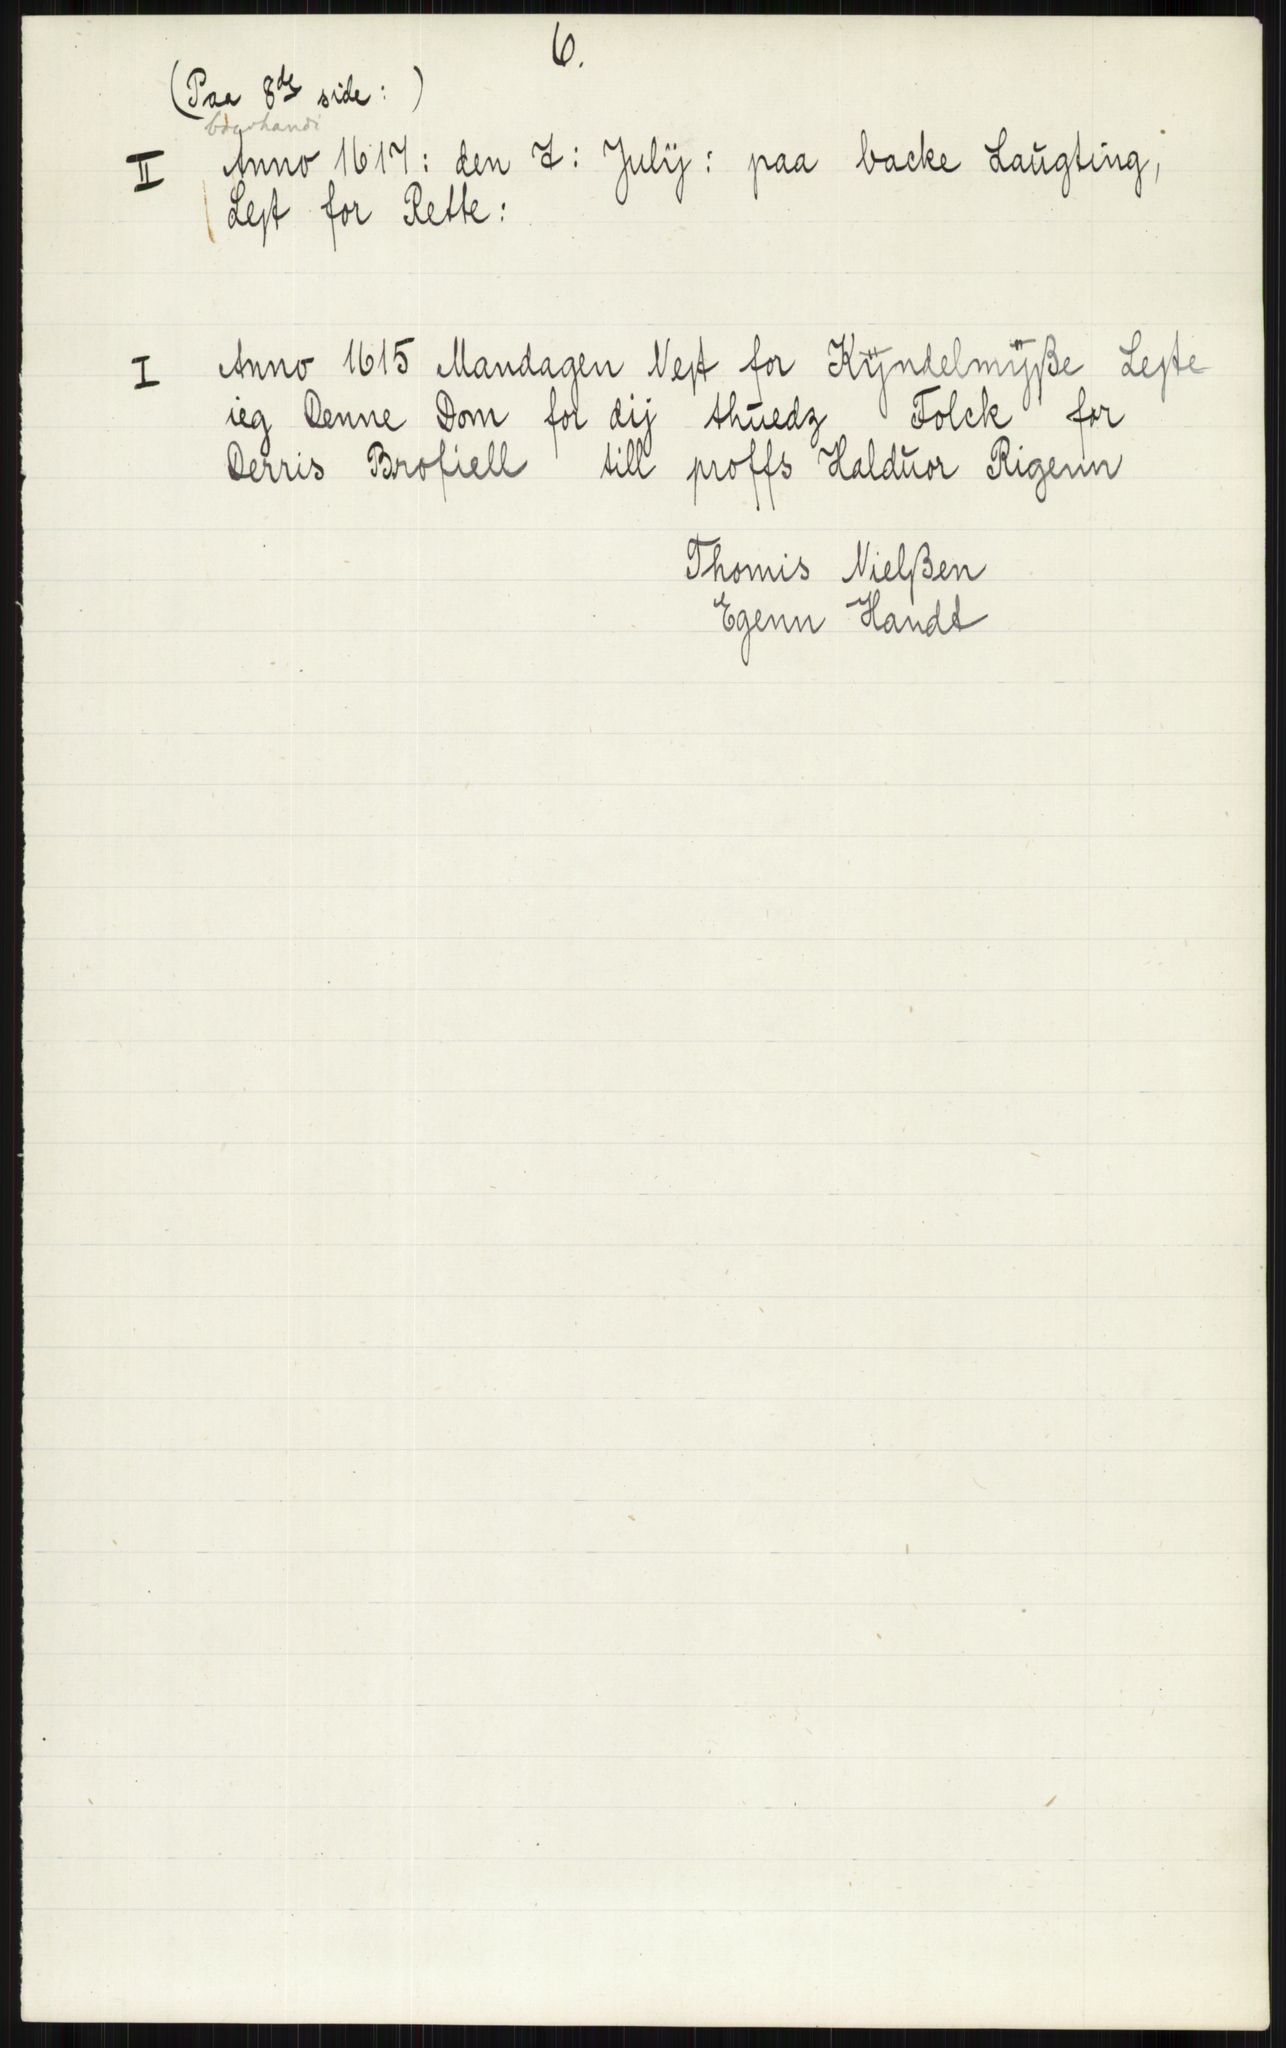 6.
(Paa 8de side: )
II Anno 1617: den 7: Julÿ: paa backe Laŭgting,
Lest for Rette:
I Anno 1615 Mandagen Nest for Kÿndelmÿße Leste
ieg Denne Dom for dij thŭedz Folck for
Derris Brofiell till proffs Haldŭor Rigenn
Thomis Nielßen
Egenn Handt